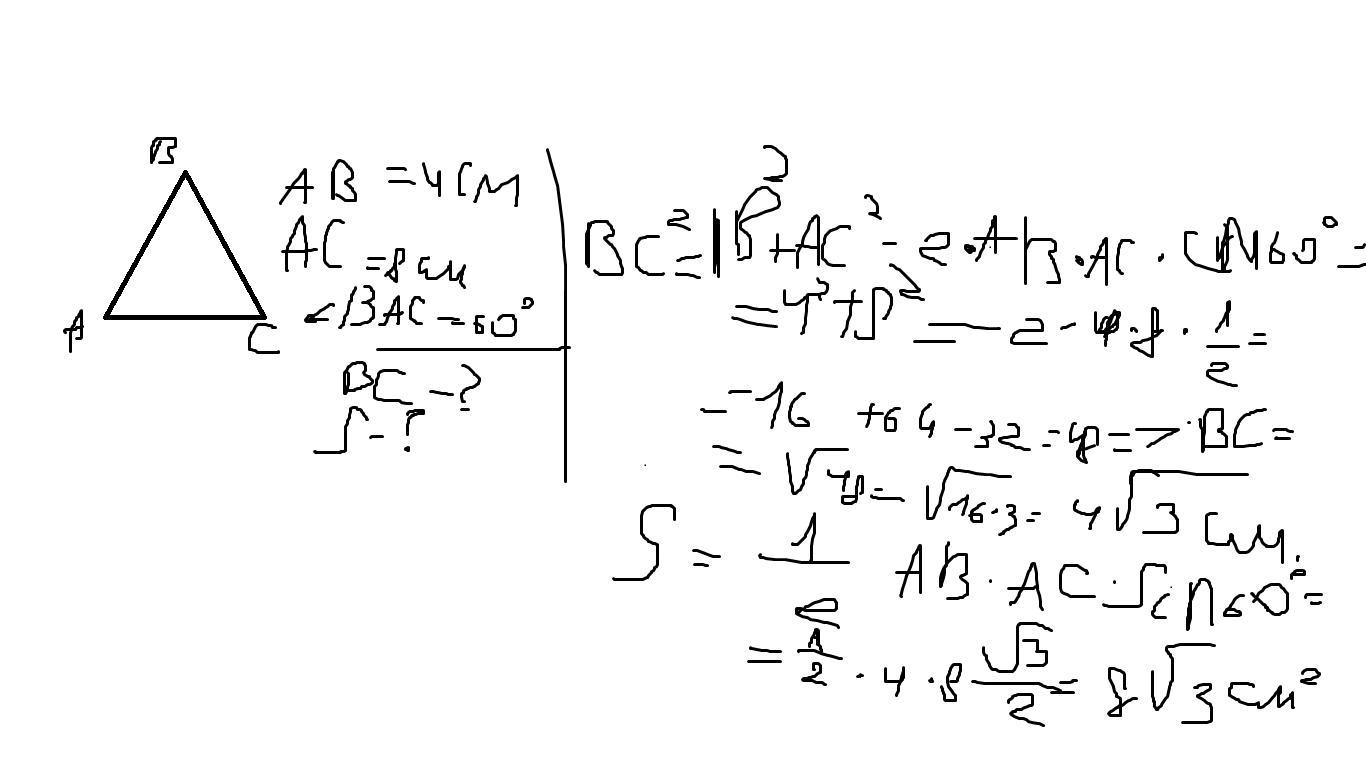 B
A
C
AB = 4 см
AC = 8 см
∠BAC = 60°
BC - ?
S - ?
BC² = AB² + AC² - 2·AB·AC · 60° =
= 4² + 8² - 2·4·8 · 1/2 =
= 16 + 64 - 32 = 48 => BC =
= √48 = √16·3 = 4√3 см.
S = 1/2 AB · AC · Sin 60° =
= 1/2 · 4 · 8 √3/2 = 8√3 см²